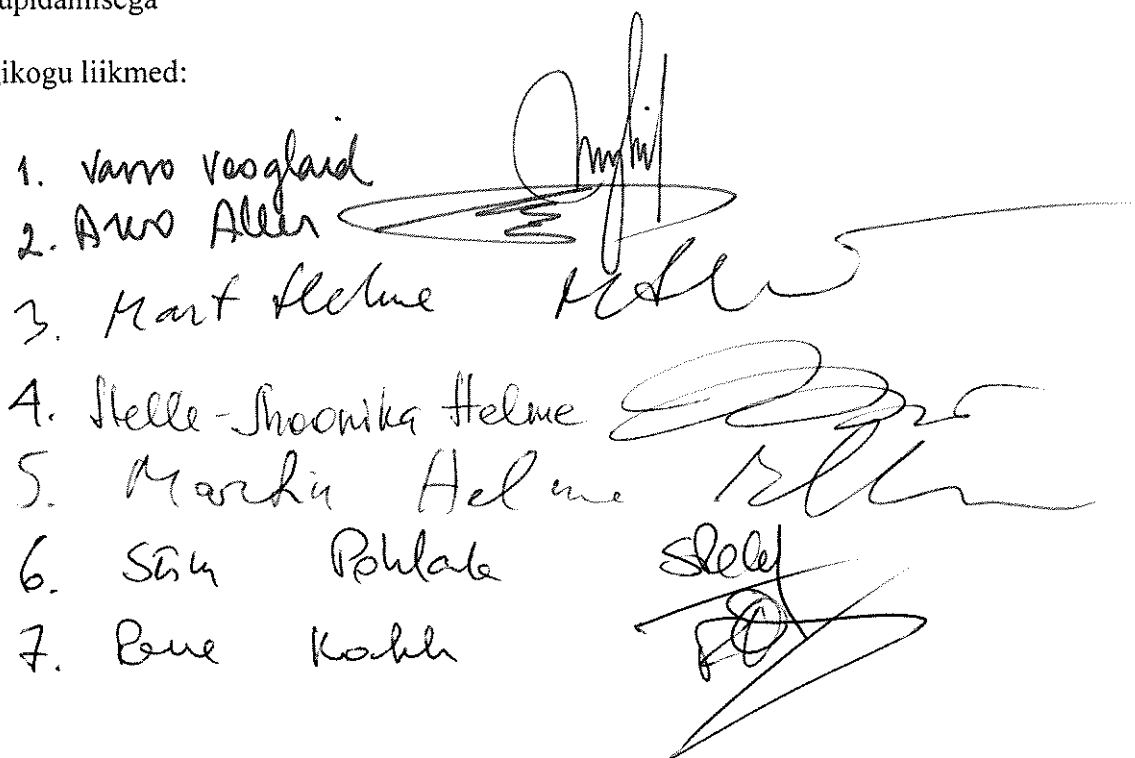 upidamisega
ikogu liikmed:
1. Varro Vooglaid
2. Arvo Aller
3. Mart Helme
4. Helle-Moonika Helme
5. Martin Helme
6. Siim Pohlak
7. Rene Kokk